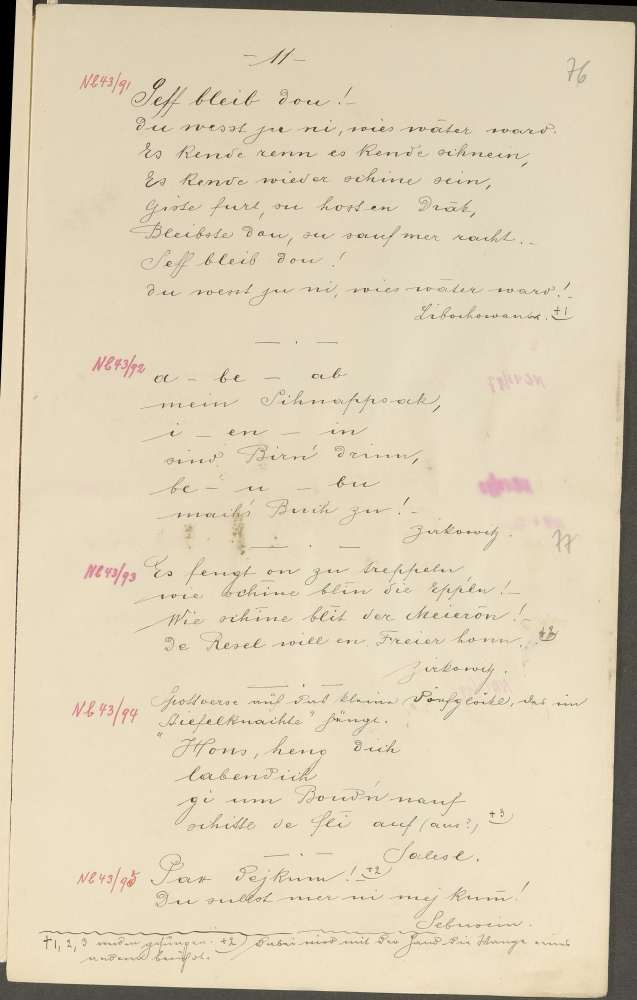 - 11 -
76
NB43/91
Seff bleib dou! -
du wesst ju ni, wies wäter ward.
Es kende renn es kende schnein,
Es kende wieder schine sein,
Giste furt, su host en Dräk,
Bleibste dou, su sauf mer racht. -
Seff bleib dou!
du wesst ju ni, wies wäter ward! -
Libochowan. +1
NB43/92
a - be - ab
mein Schnappsack,
i - en - in
sind Birn' drinn,
be - u - bu
mach's Buch zu! -
Zirkowitz.
77
NB43/93
Es fengt on zu treppeln
wie schine blin die Eppln! -
Wie schine blit der Meieron!
De Resel will en Freier honn. +2
Zirkowitz.
NB43/94
Spottverse auf das kleine Dorfglöckl, das im
"Stiefelknaichte" hängt.
"Hons, heng dich
labendich
gi um Boud'n nauf
schitte de fli auf (aus?) +3
Salesl.
NB43/95
Pax Tejkum! +2
Du sullst mer ni mej kum!
Sebusein.
+1, 2, 3 werden gesungen. +2) Dabei wird mit der Hand die Wange eines
andern berührt.